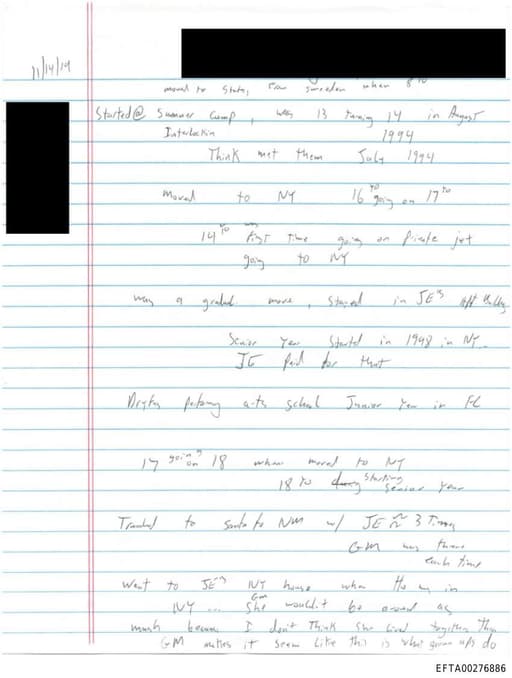 11/14/19
moved to States, from Sweden when 8 yo
Started @ Summer Camp, was 13 turning 14 in August
Interlochin 1994
Think met them July 1994
moved to NY 16 yo going on 17 yo
14 yo First time going on Private jet
going to NY
was a gradual move, stayed in JE's
Senior Year Started in 1998 in NY
JE Paid for that
arts school Junior Year in FL
17 going on 18 when moved to NY
18 yo starting senior year
Traveled to Santa Fe NM w/ JE ≈ 3 Times
GM was there
each time
Went to JE's NY house when He was in
NY ... GM She wouldn't be around as
much because I don't Think She lived together Then
GM makes it seem Like this is what grown ups do
EFTA00276886